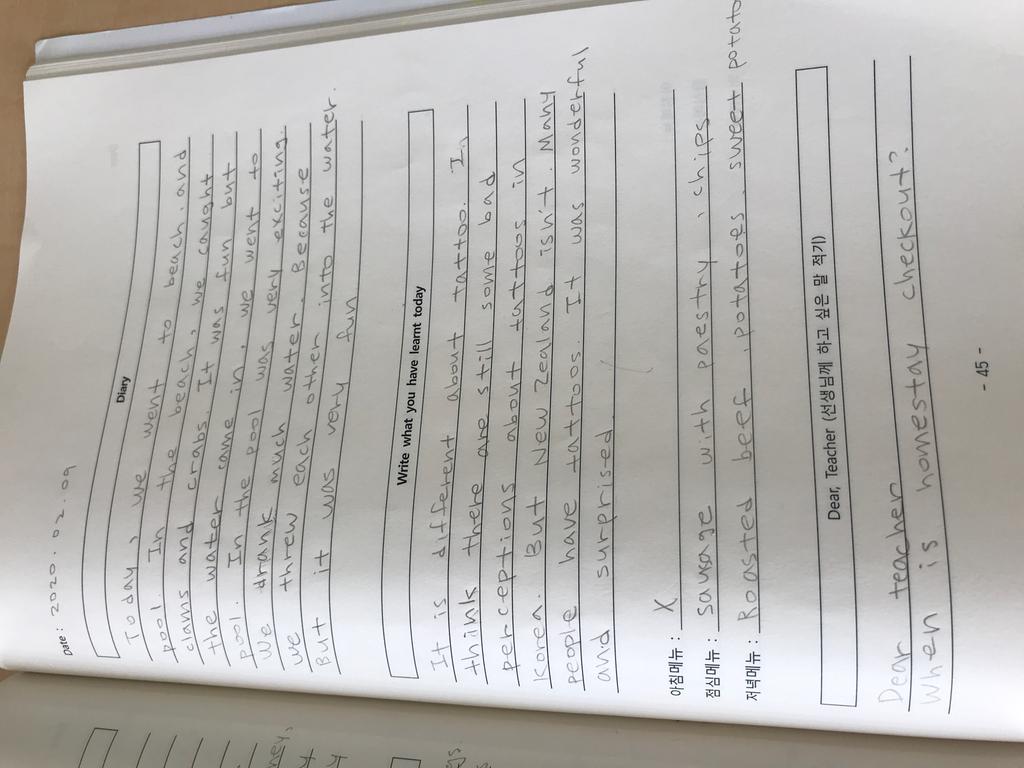 Date : 2020. 02. 09
Diary
Today, we went to beach and
pool. In the beach, we caught
clams and crabs. It was fun but
the water came in, we went to
pool. In the pool was very exciting.
We drank much water. Because
we threw each other into the water.
But it was very fun
Write what you have learnt today
It is different about tattoo. I
think there are still some bad
perceptions about tattoos in
Korea. But New Zealand isn't. Many
people have tattoos. It was wonderful
and surprised.
아침메뉴 : X
점심메뉴 : sausage with paestry, chips
저녁메뉴 : Roasted beef, potatoes, sweet potato
Dear, Teacher (선생님께 하고 싶은 말 적기)
Dear teacher
When is homestay checkout?
- 45 -